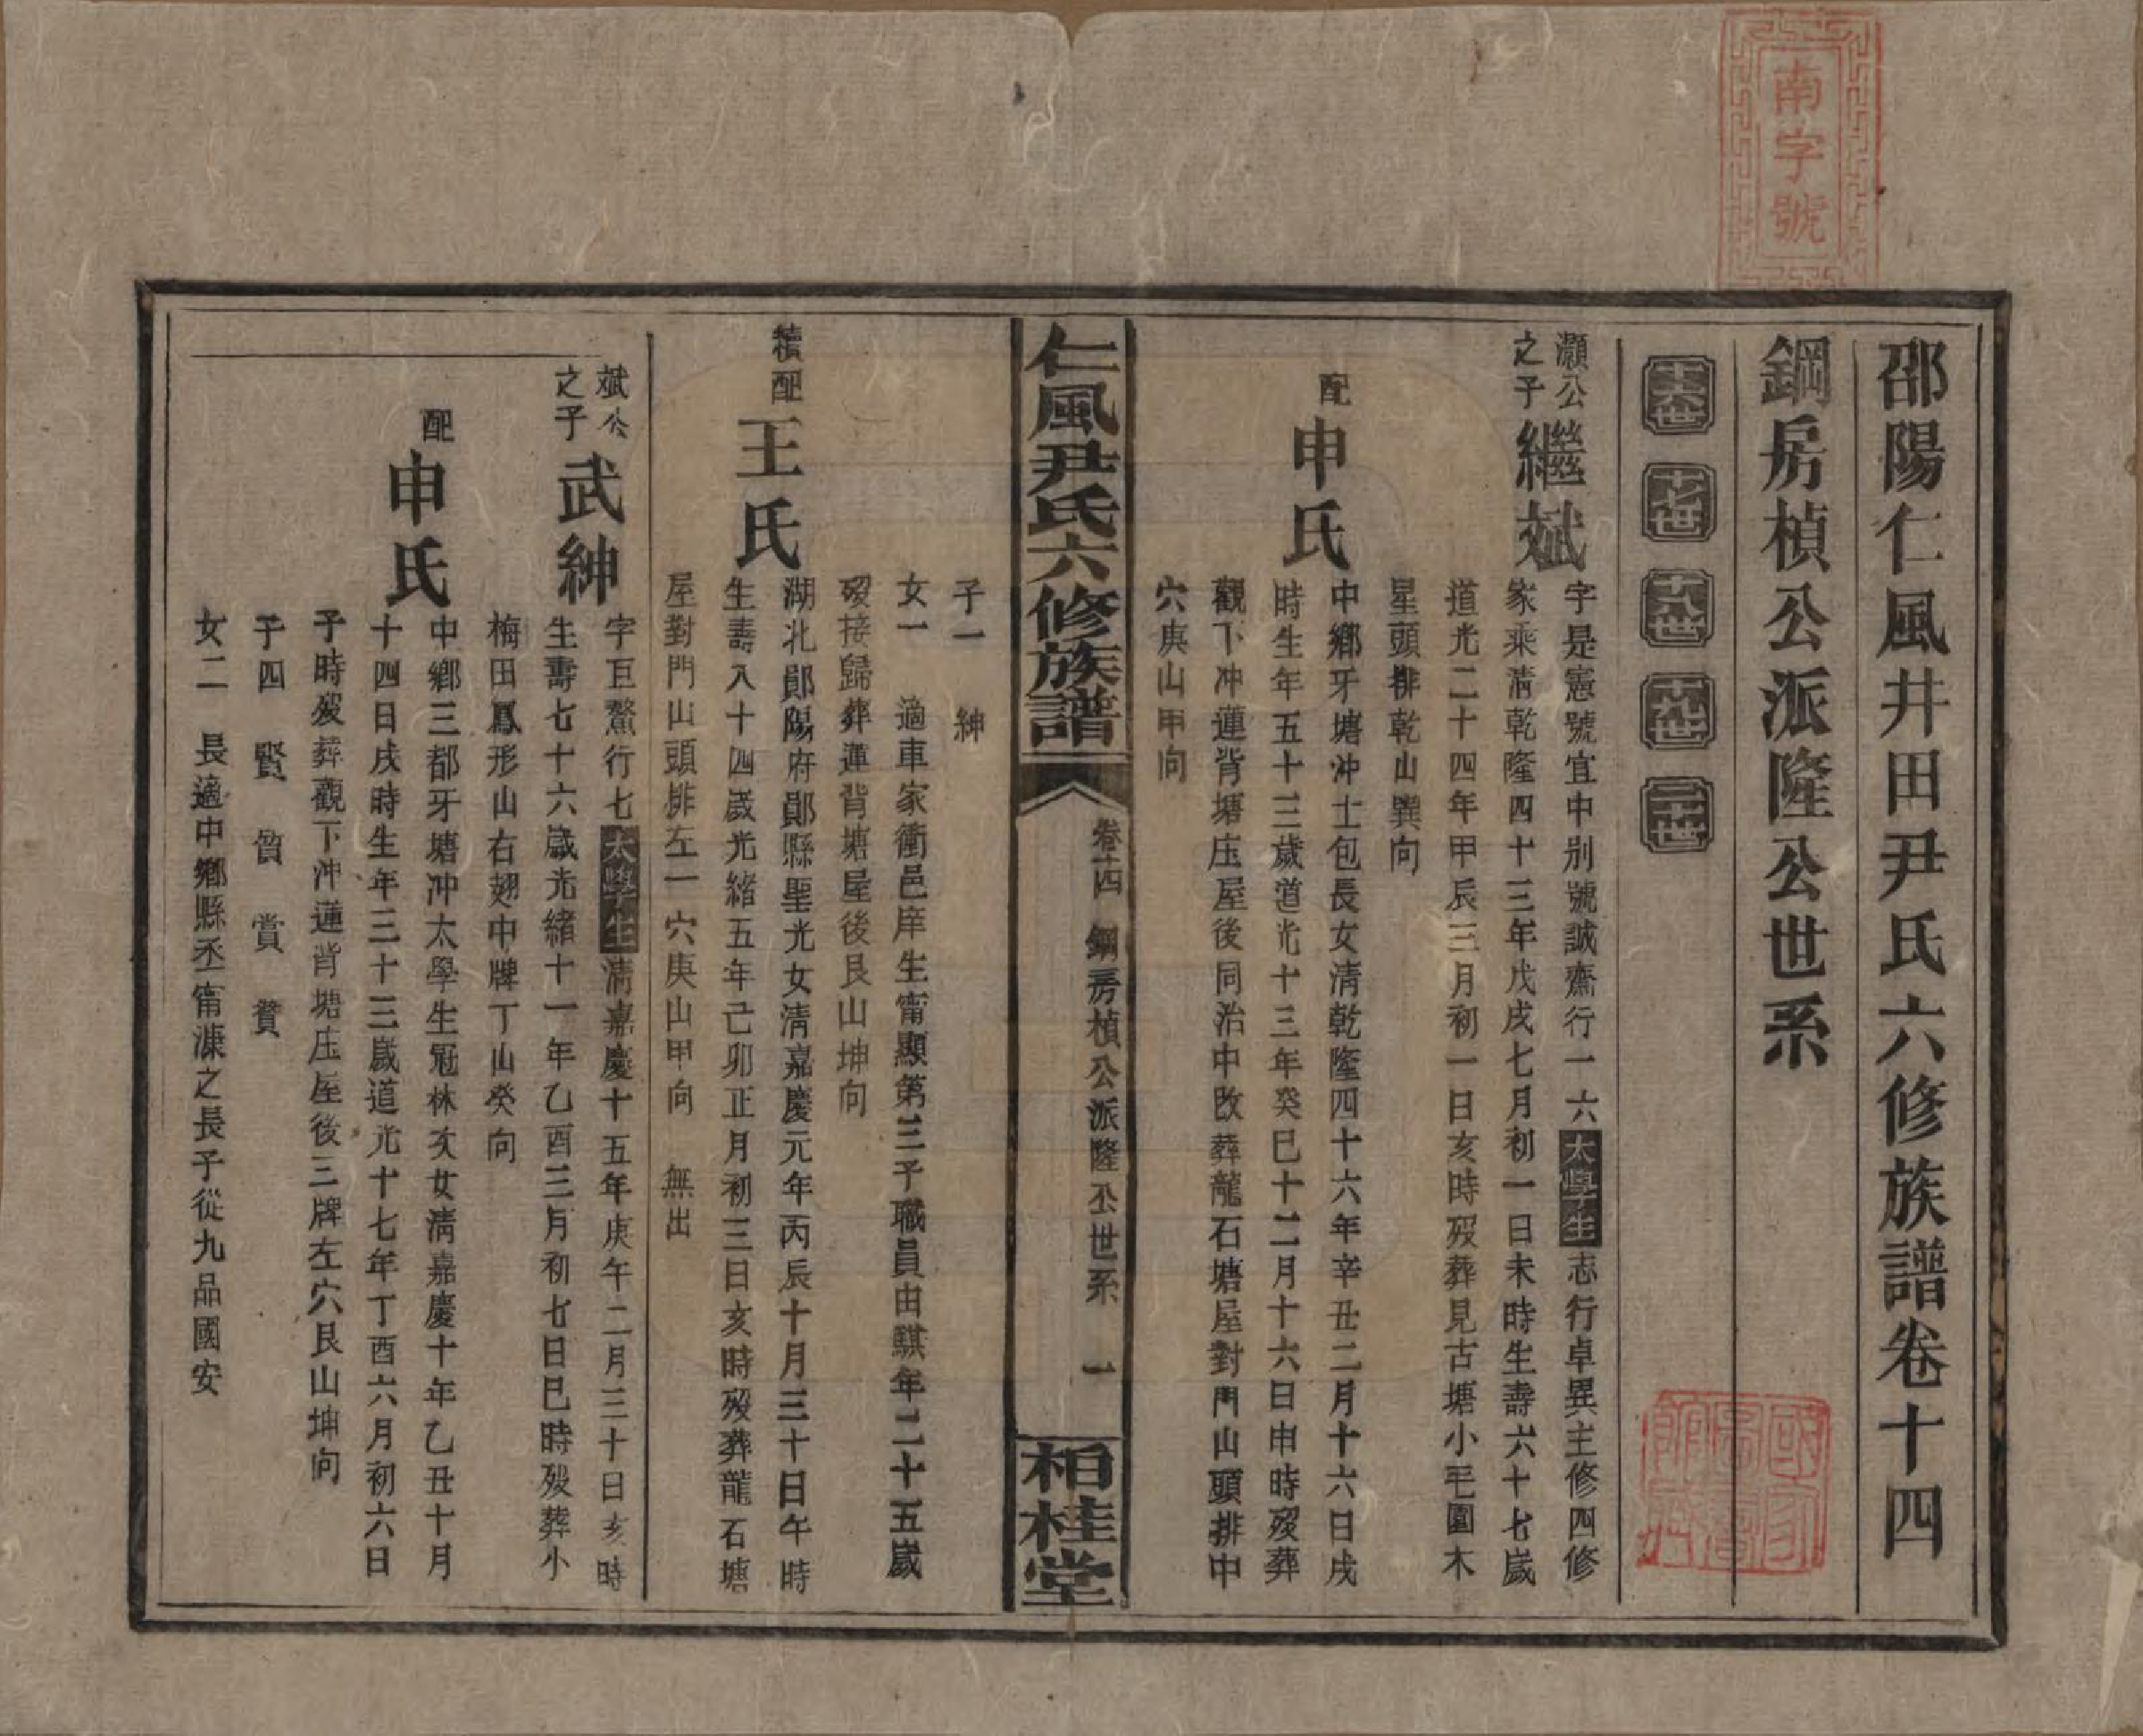 南字號
邵陽仁風井田尹氏六修族譜卷十四
鋼房楨公派隆公世系
十六世 十七世 十八世 十九世 二十世
灝公之子 繼斌
字是憲號宜中別號誠齋行一六太學生志行卓異主修四修
家乘清乾隆四十三年戊戌七月初一日未時生壽六十七歲
道光二十四年甲辰三月初一日亥時歿葬見古塘小毛園木
星頭排乾山巽向
配 申氏
中鄉牙塘冲士包長女清乾隆四十六年辛丑二月十六日戌
時生年五十三歲道光十三年癸巳十二月十六日申時歿葬
觀下冲蓮背塘庒屋後同治中改葬龍石塘屋對門山頭排中
穴庚山甲向
仁風尹氏六修族譜
卷十四 鋼房楨公派隆公世系 一
柏桂堂
子一 紳
女一 適車家衝邑庠生甯顯第三子職員由騏年二十五歲
歿接歸葬蓮背塘屋後艮山坤向
續配 王氏
湖北鄖陽府鄖縣聖光女清嘉慶元年丙辰十月三十日午時
生壽八十四歲光緒五年己卯正月初三日亥時歿葬龍石塘
屋對門山頭排左一穴庚山甲向 無出
斌公之子 武紳
字巨鰲行七太學生清嘉慶十五年庚午二月三十日亥時
生壽七十六歲光緒十一年乙酉三月初七日巳時歿葬小
梅田鳳形山右翅中牌丁山癸向
配 申氏
中鄉三都牙塘冲太學生冠林次女清嘉慶十年乙丑十月
十四日戌時生年三十三歲道光十七年丁酉六月初六日
子時歿葬觀下冲蓮背塘庒屋後三牌左穴艮山坤向
子四 賢 賀 賞 贊
女二 長適中鄉縣丞甯濂之長子從九品國安